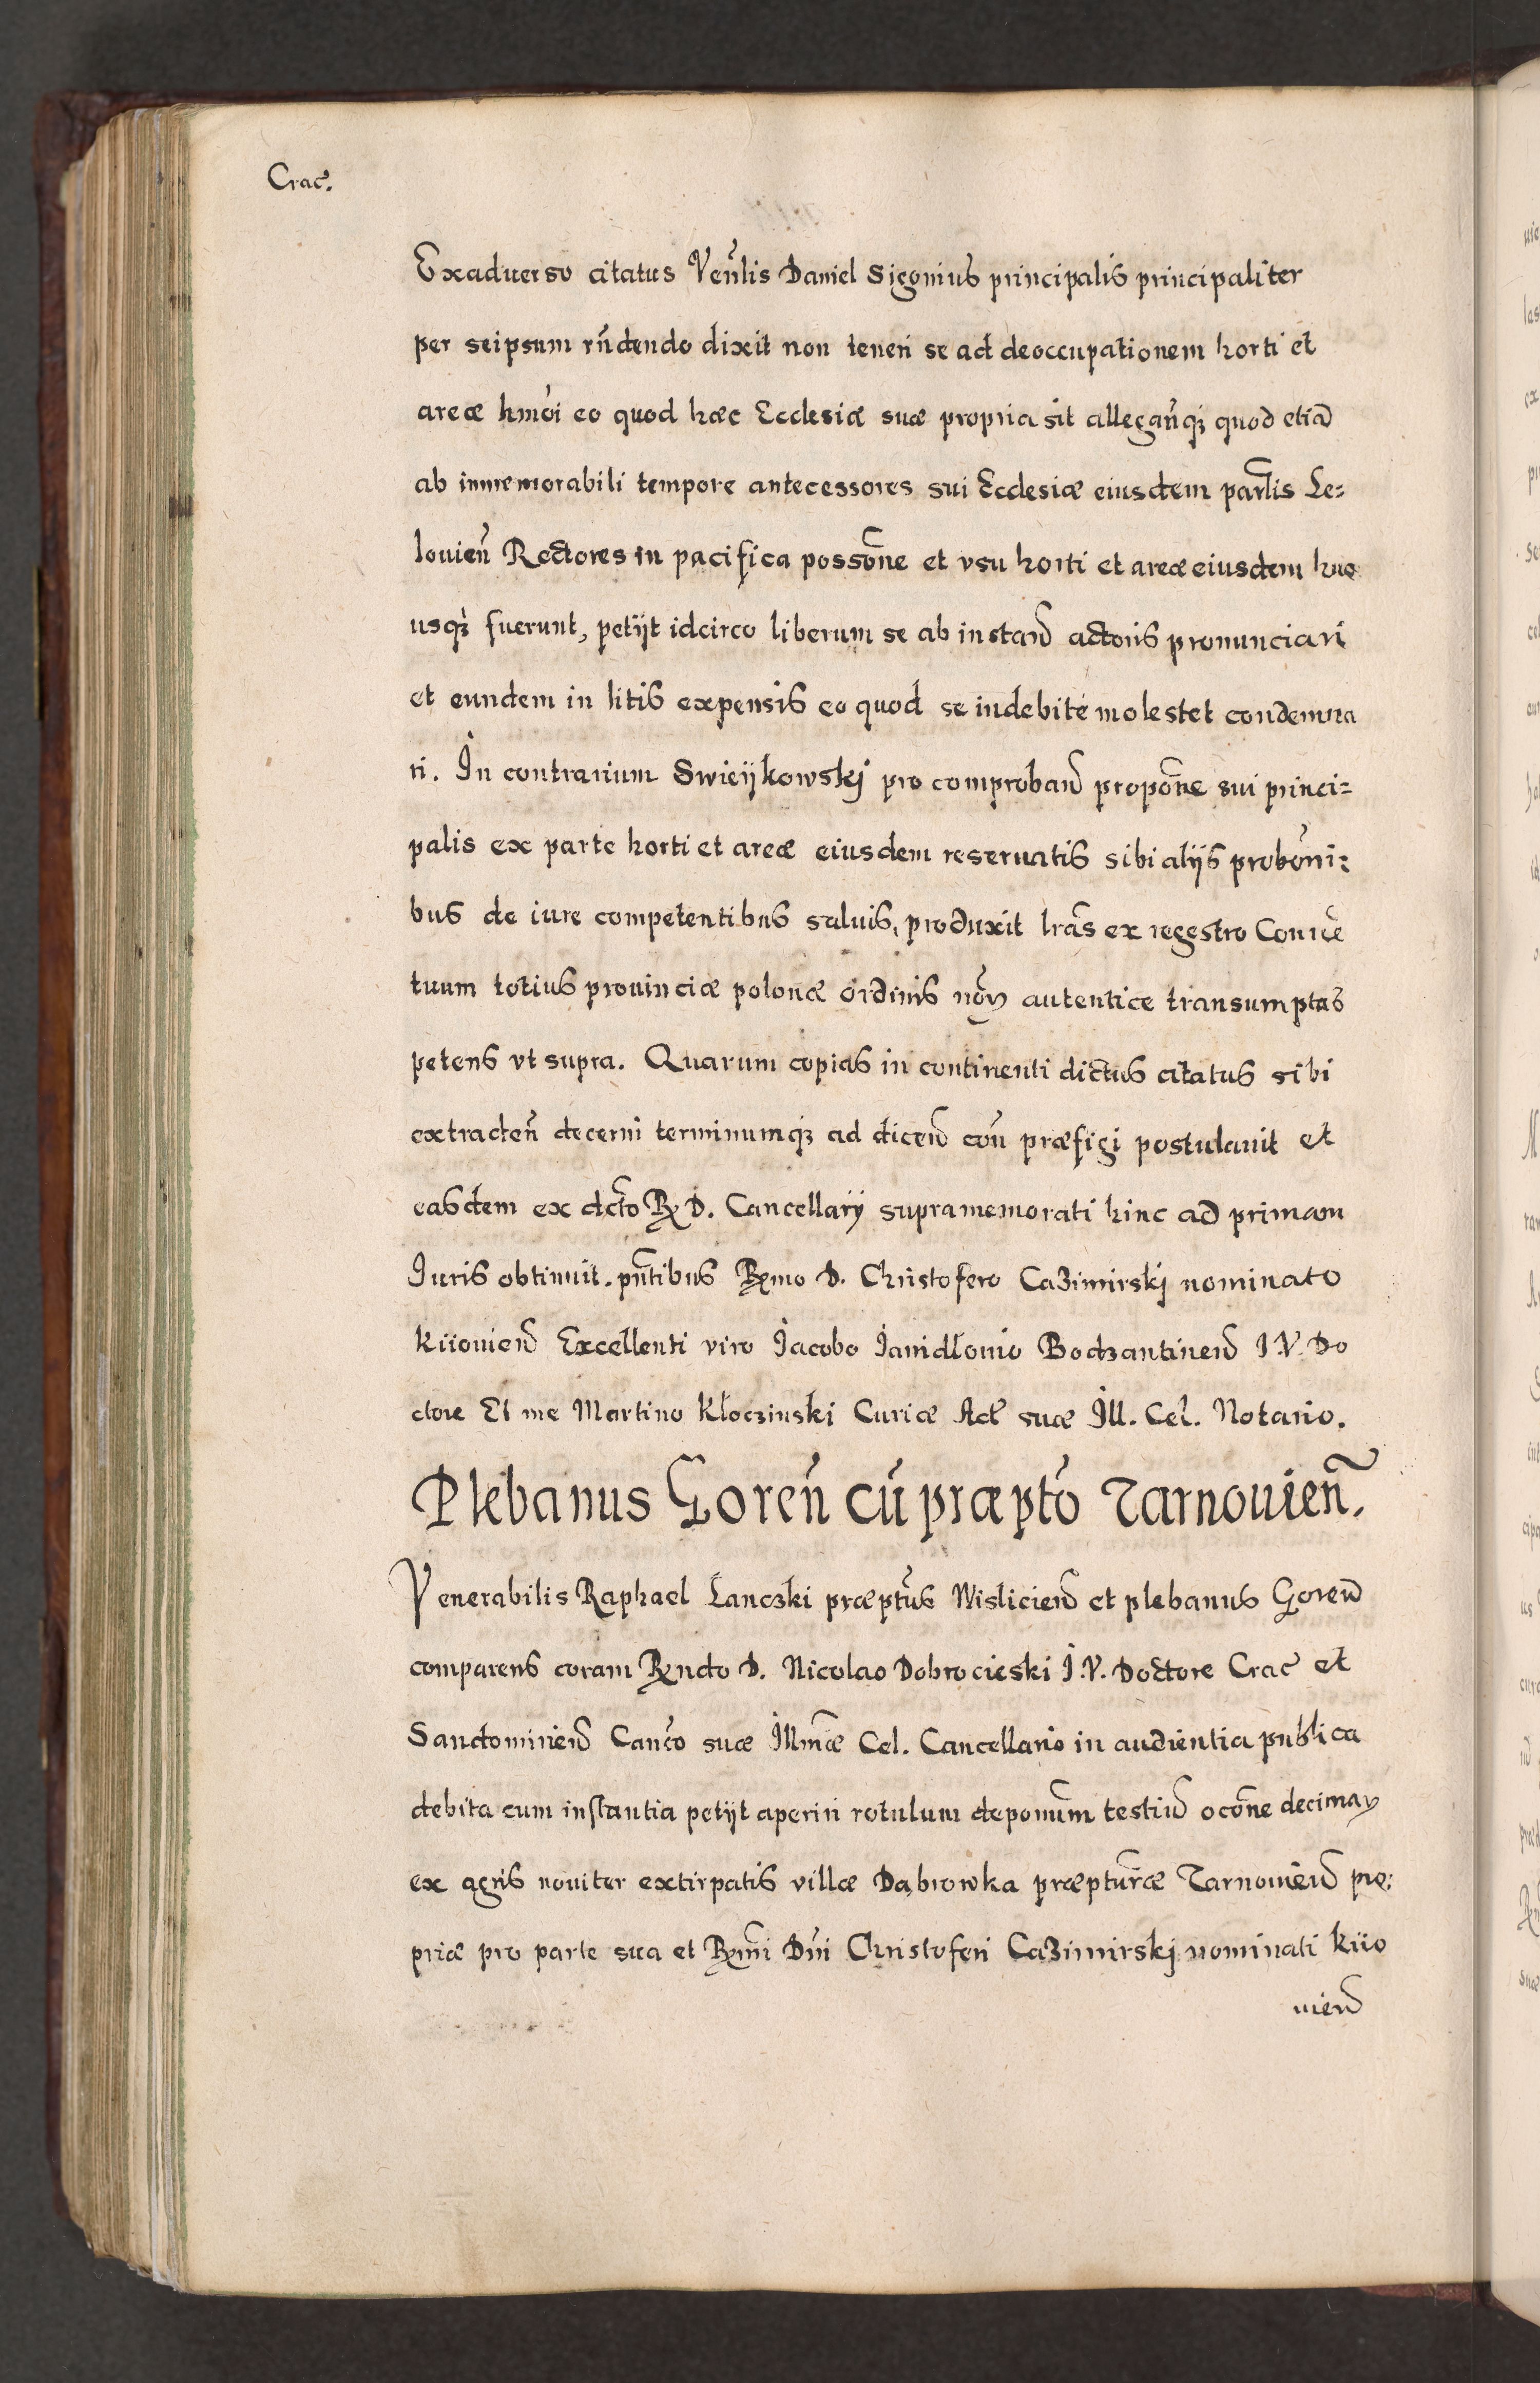 Crac̃.
Exaduerso citatus Veñlis Daniel Sigonius principalis principaliter
per seipsum rñdendo dixit non teneri se ad deoccupationem horti et
areæ hmõi eo quod hæc Ecclesiæ suæ propria sit allegañqꝫ quod etiã
ab immemorabili tempore antecessores sui Ecclesiæ eiusdem parlis̃ Le=
louieñ Rectores in pacifica possõne et vsu horti et areæ eiusdem huc
usqꝫ fuerunt, petijt idcirco liberum se ab instañ actoris pronunciari
et eundem in litis expensis eo quod se indebitè molestet condemna
ri. In contrarium Swieÿkowskj pro comprobañ propõne sui princi=
palis ex parte horti et areæ eiusdem reseruatis sibi alijs probõni=
bus de iure competentibus saluis, produxit lrãs ex regestro Conuẽ
tuum totius prouinciæ polonæ ordinis nõꝝ autentice transumptas
petens vt supra. Quarum copias in continenti dictus citatus sibi
extradeñ decerni terminumqꝫ ad diceñ coñ præfigi postulauit et
easdem ex dcto R D. Cancellarij supramemorati hinc ad primam
Iuris obtinuit. pñtibus Rmo D. Christofero Cazimirskj nominato
kiiouieñ Excellenti viro Jacobo Janidłouio Bodzantineñ I. V. Do
ctore Et me Martino Kłoczinski Curiæ Act̃ suæ Ill. Cel. Notario.
Plebanus Goreñ cũ præptõ Tarnouieñ.
Venerabilis Raphael Lanczki præptũs Wislicieñ et plebanus Goreñ
comparens coram Rndo D. Nicolao Dobrocieski I. V. Doctore Crac̃ et
Sandomirieñ Cancõ suæ Illmæ̃ Cel. Cancellario in audientia publica
debita cum instantia petijt aperiri rotulum deponum̃ testiũ occõne decimaꝝ
ex agris nouiter extirpatis villæ Dąbrowka præpturæ̃ Tarnouieñ pro=
priæ pro parte sua et Rmĩ Dñi Christoferi Cazimirskj nominati kiio
uieñ